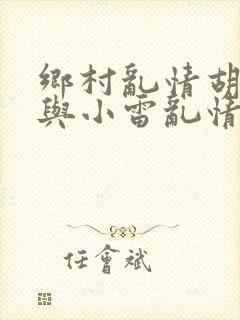 鄉村亂情胡
與小雷亂情
任會斌